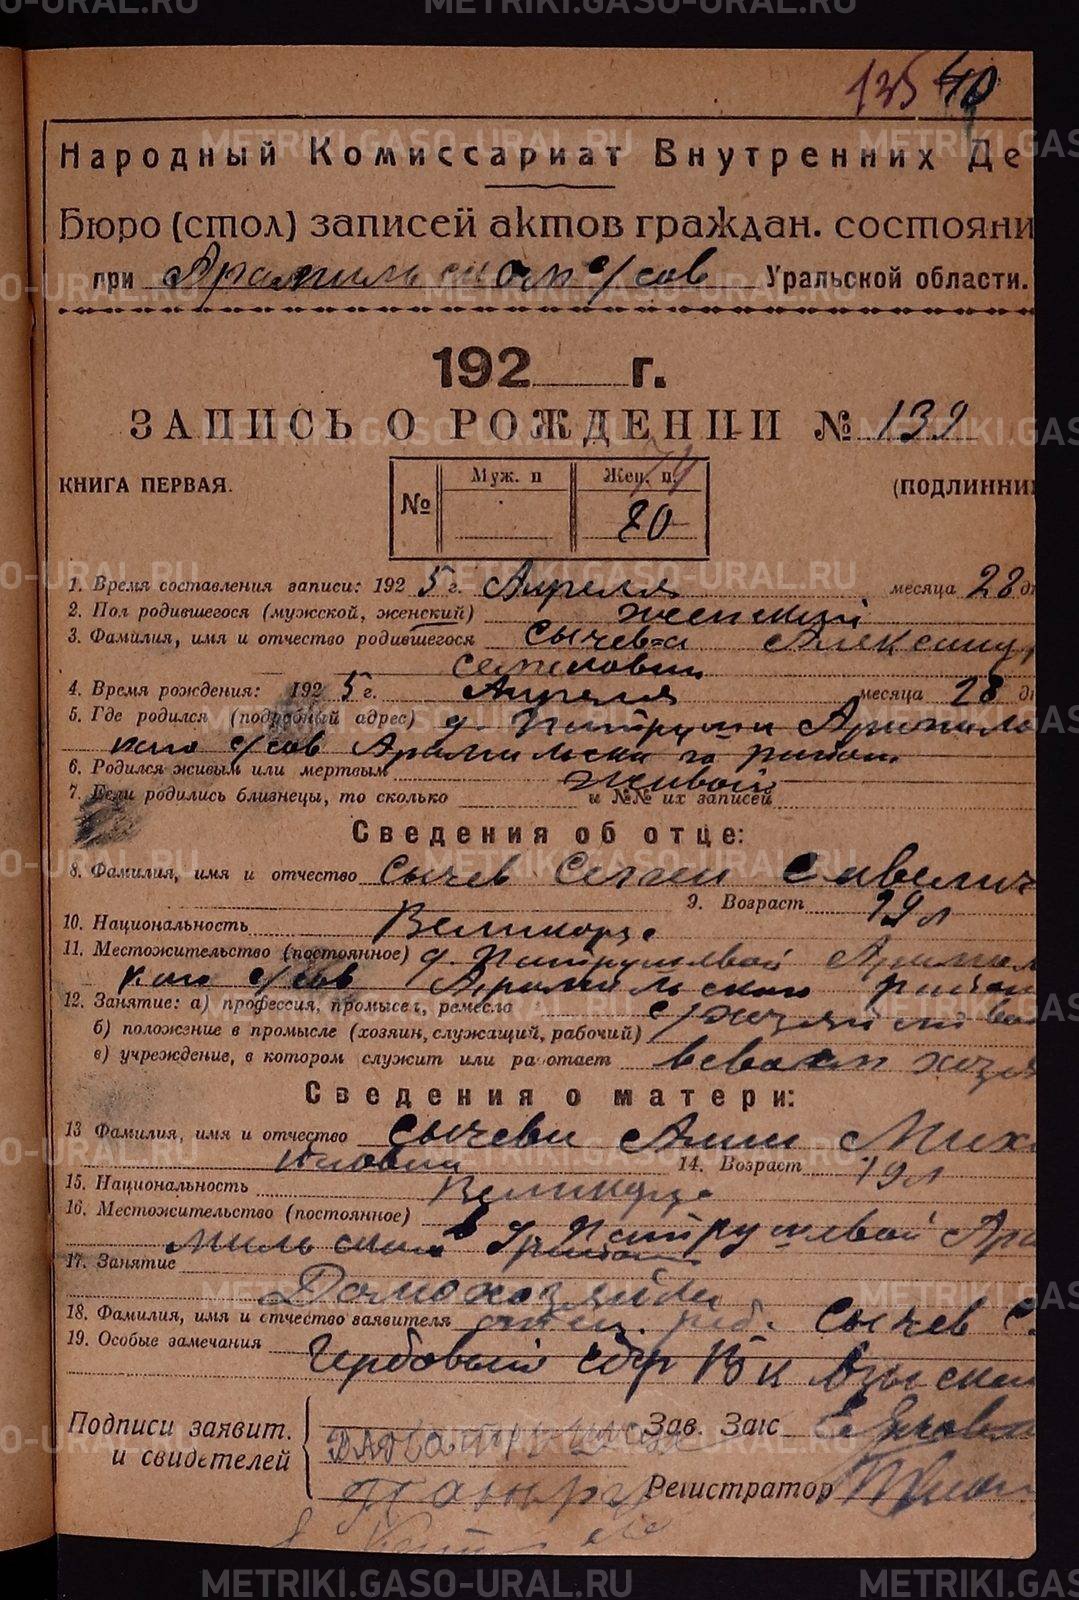 135 40
Народный Комиссариат Внутренних Де
Бюро (стол) записей актов граждан. состояни
при Арамильском с/сов Уральской области.
192 г.
ЗАПИСЬ О РОЖДЕНИИ № 139
КНИГА ПЕРВАЯ. (ПОДЛИННИ
№ Муж. п Жен. п. 79
80
1. Время составления записи: 192 5 г. Апреля месяца 28 д
2. Пол родившегося (мужской, женский) женский
3. Фамилия, имя и отчество родившегося Сычев-а Александ
4. Время рождения: 192 5 г. Апреля месяца 28 д
5. Где родился (подробный адрес) д.
кого с/сов Арамильского район.
6. Родился живым или мертвым живой
7. Если родились близнецы, то сколько и №№ их записей
Сведения об отце:
8. Фамилия, имя и отчество Сычев Семен Савелич
9. Возраст 19 л
10. Национальность Великорс.
11. Местожительство (постоянное) д. Патрушевой Арамил
кого с/сов Арамильского район
12. Занятие: а) профессия, промысел, ремесла с/хозяйство
б) положение в промысле (хозяин, служащий, рабочий)
в) учреждение, в котором служит или работает в своем хозя
Сведения о матери:
13 Фамилия, имя и отчество Сычева Анна Миха
14. Возраст 19 л
15. Национальность Великорс.
16. Местожительство (постоянное) в д. Патрушевой Ара
мильского район
17. Занятие
Домохозяйка
18. Фамилия, имя и отчество заявителя отец реб. Сычев С.
19. Особые замечания Гербовый сбор 1 р к взыскан
Подписи заявит. и свидетелей Зав. Загс
Регистратор
METRIKI.GASO-URAL.RU